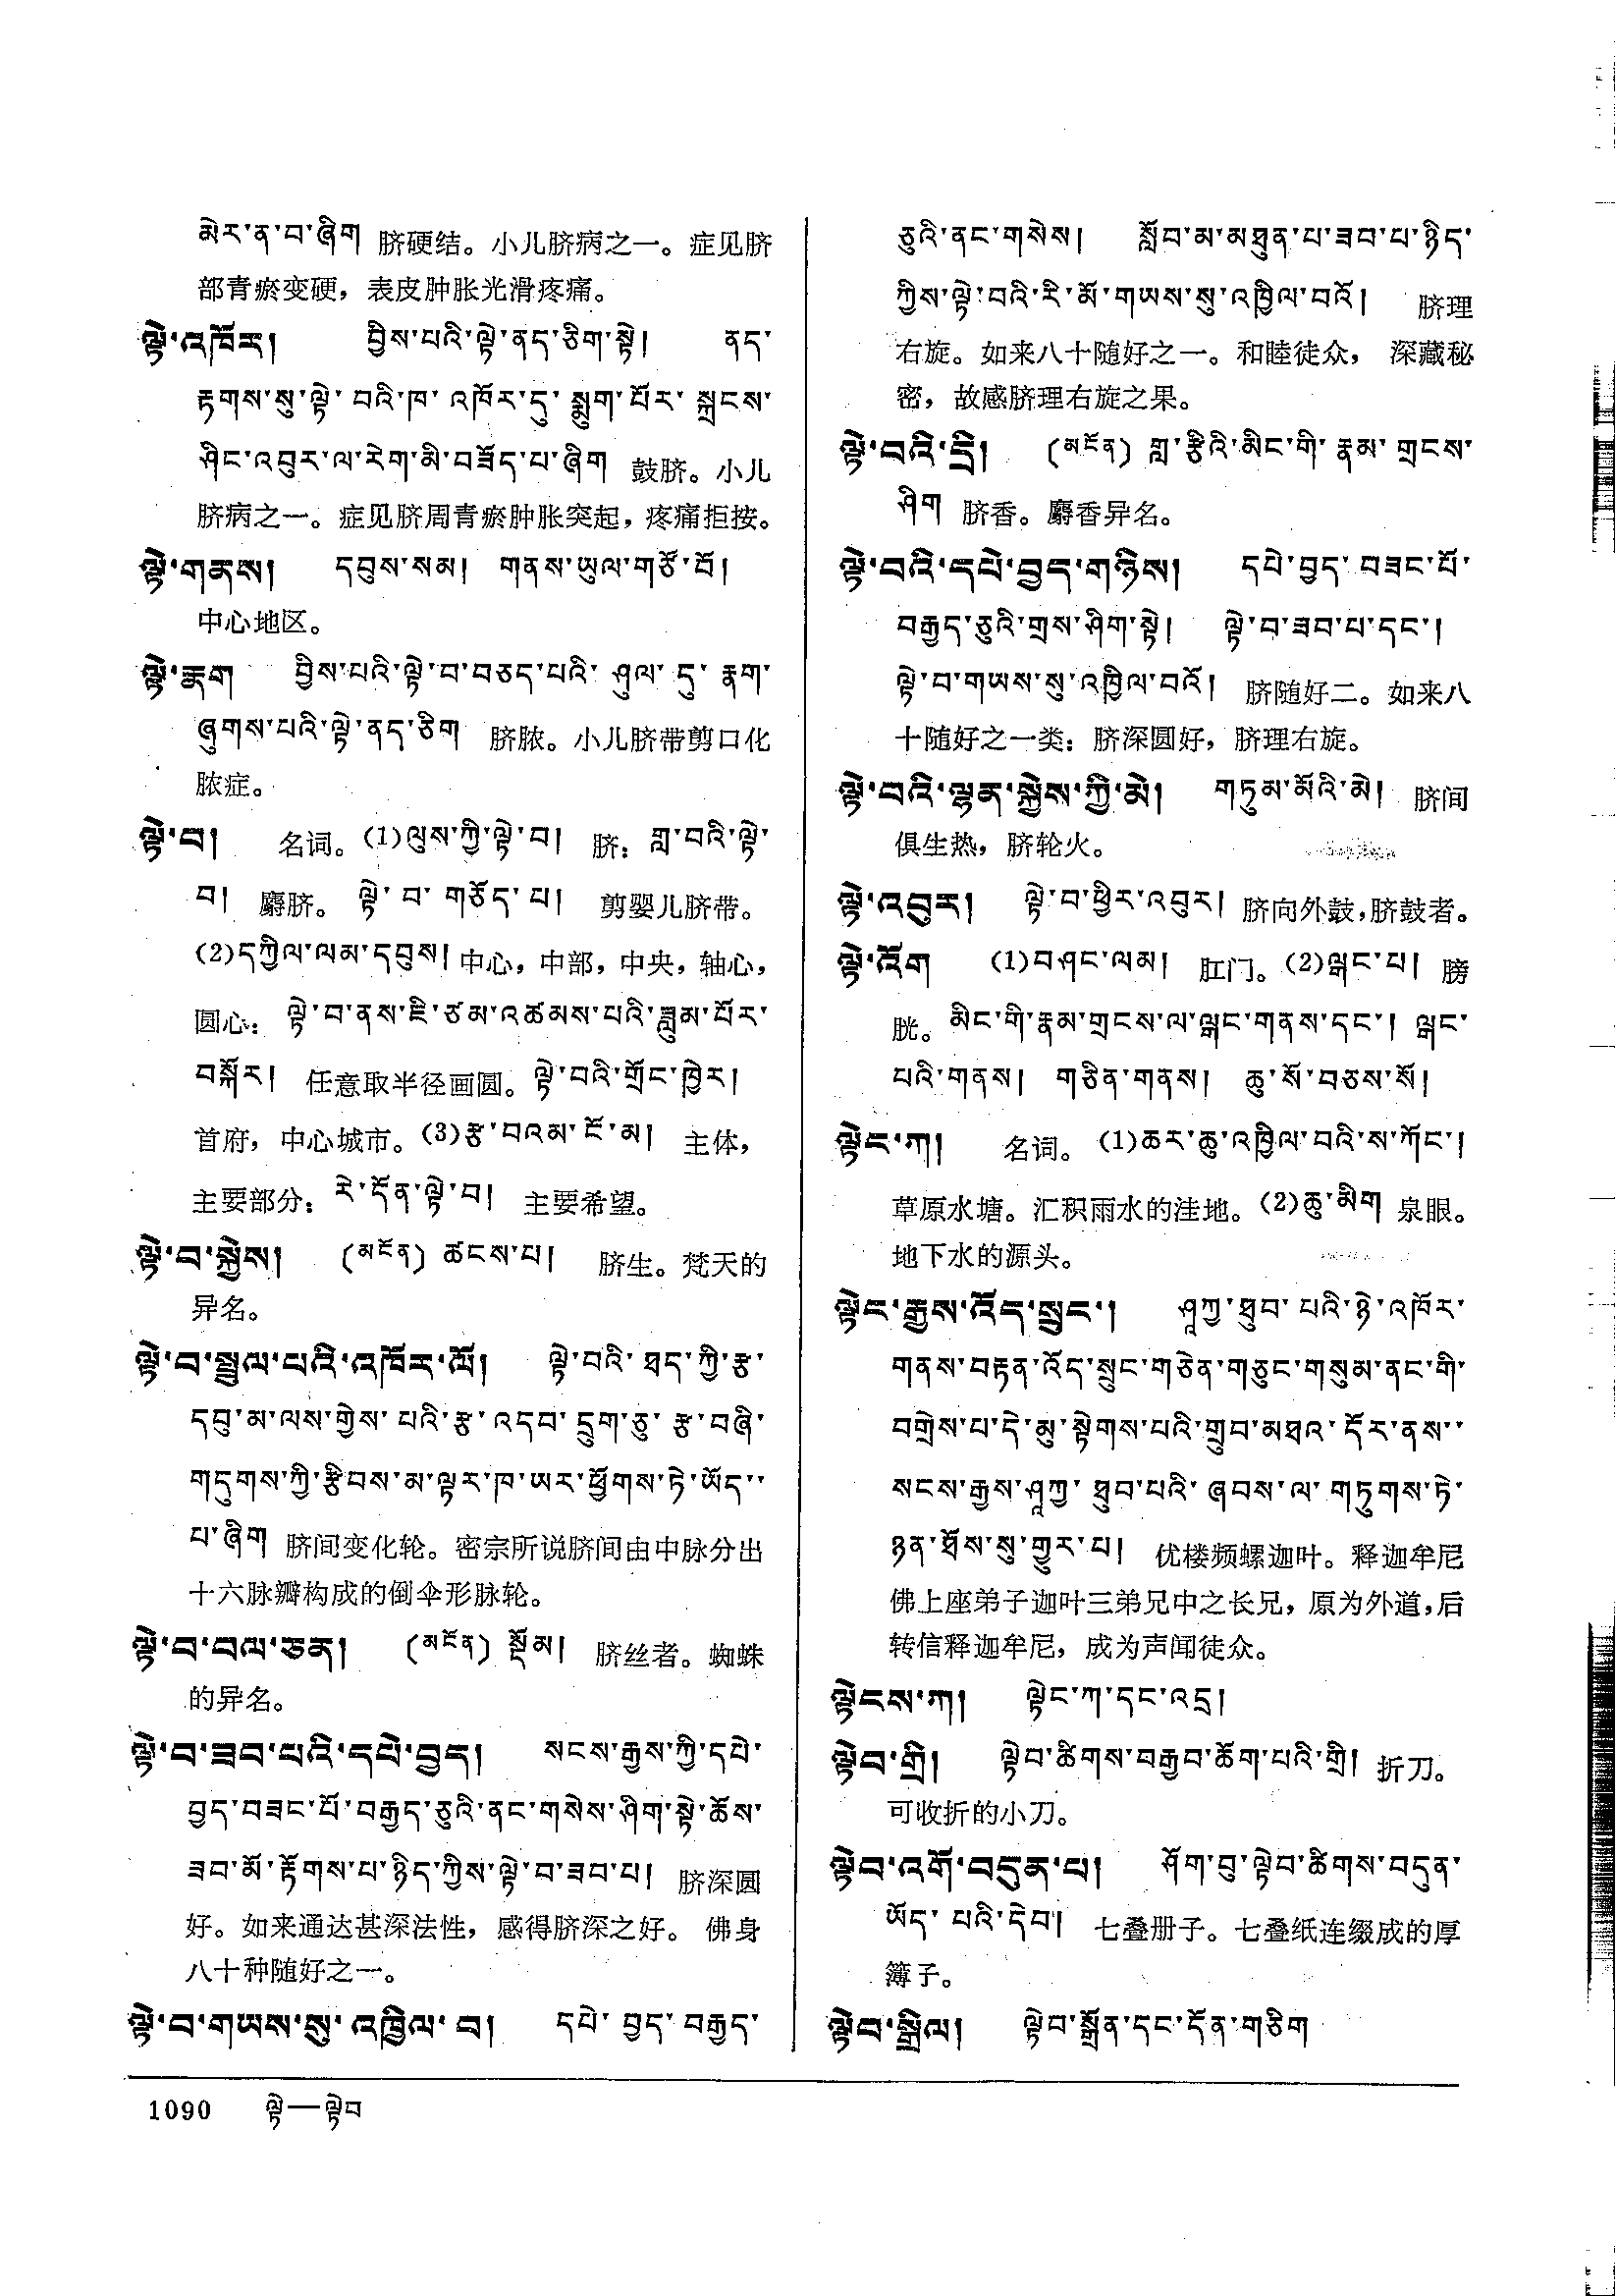 མེར་ན་བ་ཞིག 脐硬结。小儿脐病之一。症见脐
部青瘀变硬，表皮肿胀光滑疼痛。
ལྟེ་འཁོར། བྱིས་པའི་ལྟེ་ནད་ཅིག་སྟེ། ནད་
རྟགས་སུ་ལྟེ་བའི་ཁ་འཁོར་དུ་སྨུག་པོར་སྐྲངས་
ཤིང་འབུར་ལ་རེག་མི་བཟོད་པ་ཞིག 鼓脐。小儿
脐病之一。症见脐周青瘀肿胀突起，疼痛拒按。
ལྟེ་གནས། དབུས་སམ། གནས་ཡུལ་གཙོ་བོ།
中心地区。
ལྟེ་རྣག བྱིས་པའི་ལྟེ་བ་བཅད་པའི་ཤུལ་དུ་རྣག་
ཞུགས་པའི་ལྟེ་ནད་ཅིག 脐脓。小儿脐带剪口化
脓症。
ལྟེ་བ། 名词。(1)ལུས་ཀྱི་ལྟེ་བ། 脐：གླ་བའི་ལྟེ་
བ། 麝脐。 ལྟེ་བ་གཅོད་པ། 剪婴儿脐带。
(2)དཀྱིལ་ལམ་དབུས། 中心，中部，中央，轴心，
圆心：ལྟེ་བ་ནས་ཇི་ཙམ་འཚམས་པའི་ཟླུམ་པོར་
བསྐོར། 任意取半径画圆。ལྟེ་བའི་གྲོང་ཁྱེར།
首府，中心城市。(3)རྩ་བའམ་ངོ་མ། 主体，
主要部分：རེ་དོན་ལྟེ་བ། 主要希望。
ལྟེ་བ་སྐྱེས། (མངོན) ཚངས་པ། 脐生。梵天的
异名。
ལྟེ་བ་སྤྲུལ་པའི་འཁོར་ལོ། ལྟེ་བའི་ཐད་ཀྱི་རྩ་
དབུ་མ་ལས་གྱེས་པའི་རྩ་འདབ་དྲུག་ཅུ་རྩ་བཞི་
གདུགས་ཀྱི་རྩིབས་མ་ལྟར་ཁ་ཡར་ཕྱོགས་ཏེ་ཡོད་་
པ་ཞིག 脐间变化轮。密宗所说脐间由中脉分出
十六脉瓣构成的倒伞形脉轮。
ལྟེ་བ་བལ་ཅན། (མངོན) སྡོམ། 脐丝者。蜘蛛
的异名。
ལྟེ་བ་ཟབ་པའི་དཔེ་བྱད། སངས་རྒྱས་ཀྱི་དཔེ་
བྱད་བཟང་པོ་བརྒྱད་ཅུའི་ནང་གསེས་ཤིག་སྟེ་ཆོས་
ཟབ་མོ་རྟོགས་པ་ཉིད་ཀྱིས་ལྟེ་བ་ཟབ་པ། 脐深圆
好。如来通达甚深法性，感得脐深之好。 佛身
八十种随好之一。
ལྟེ་བ་གཡས་སུ་འཁྱིལ་བ། དཔེ་བྱད་བརྒྱད་
ཅུའི་ནང་གསེས། སློབ་མ་མཐུན་པ་ཟབ་པ་ཉིད་
ཀྱིས་ལྟེ་བའི་རི་མོ་གཡས་སུ་འཁྱིལ་བའོ། 脐理
右旋。如来八十随好之一。和睦徒众， 深藏秘
密，故感脐理右旋之果。
ལྟེ་བའི་དྲི། (མངོན) གླ་རྩིའི་མིང་གི་རྣམ་གྲངས་
ཤིག 脐香。麝香异名。
ལྟེ་བའི་དཔེ་བྱད་གཉིས། དཔེ་བྱད་བཟང་པོ་
བརྒྱད་ཅུའི་གྲས་ཤིག་སྟེ། ལྟེ་བ་ཟབ་པ་དང་།
ལྟེ་བ་གཡས་སུ་འཁྱིལ་བའོ། 脐随好二。如来八
十随好之一类：脐深圆好，脐理右旋。
ལྟེ་བའི་ལྷན་སྐྱེས་ཀྱི་མེ། གཏུམ་མོའི་མེ། 脐间
俱生热，脐轮火。
ལྟེ་འབུར། ལྟེ་བ་ཕྱིར་འབུར། 脐向外鼓，脐鼓者。
ལྟེ་འོག (1)བཤང་ལམ། 肛门。(2)ལྒང་པ། 膀
胱。མིང་གི་རྣམ་གྲངས་ལ་ལྒང་གནས་དང་། ལྒང་
པའི་གནས། གཅིན་གནས། ཆུ་སོ་བཅས་སོ།
ལྟེང་ཀ། 名词。(1)ཆར་ཆུ་འཁྱིལ་བའི་ས་ཀོང་།
草原水塘。汇积雨水的洼地。(2)ཆུ་མིག 泉眼。
地下水的源头。
ལྟེང་རྒྱས་འོད་སྲུང་། ཤཱཀྱ་ཐུབ་པའི་ཉེ་འཁོར་
གནས་བརྟན་འོད་སྲུང་གཅེན་གཅུང་གསུམ་ནང་གི་
བགྲེས་པ་དེ་མུ་སྟེགས་པའི་གྲུབ་མཐའ་དོར་ནས་་
སངས་རྒྱས་ཤཱཀྱ་ཐུབ་པའི་ཞབས་ལ་གཏུགས་ཏེ་
ཉན་ཐོས་སུ་གྱུར་པ། 优楼频螺迦叶。释迦牟尼
佛上座弟子迦叶三弟兄中之长兄，原为外道，后
转信释迦牟尼，成为声闻徒众。
ལྟེངས་ཀ། ལྟེང་ཀ་དང་འདྲ།
ལྟེབ་གྲི། ལྟེབ་ཚིགས་བརྒྱབ་ཆོག་པའི་གྲི། 折刀。
可收折的小刀。
ལྟེབ་འགོ་བདུན་པ། ཤོག་བུ་ལྟེབ་ཚིགས་བདུན་
ཡོད་པའི་དེབ། 七叠册子。七叠纸连缀成的厚
簿子。
ལྟེབ་སྒྲིལ། ལྟེབ་སྒྲོན་དང་དོན་གཅིག
1090 ལྟེ—ལྟེབ